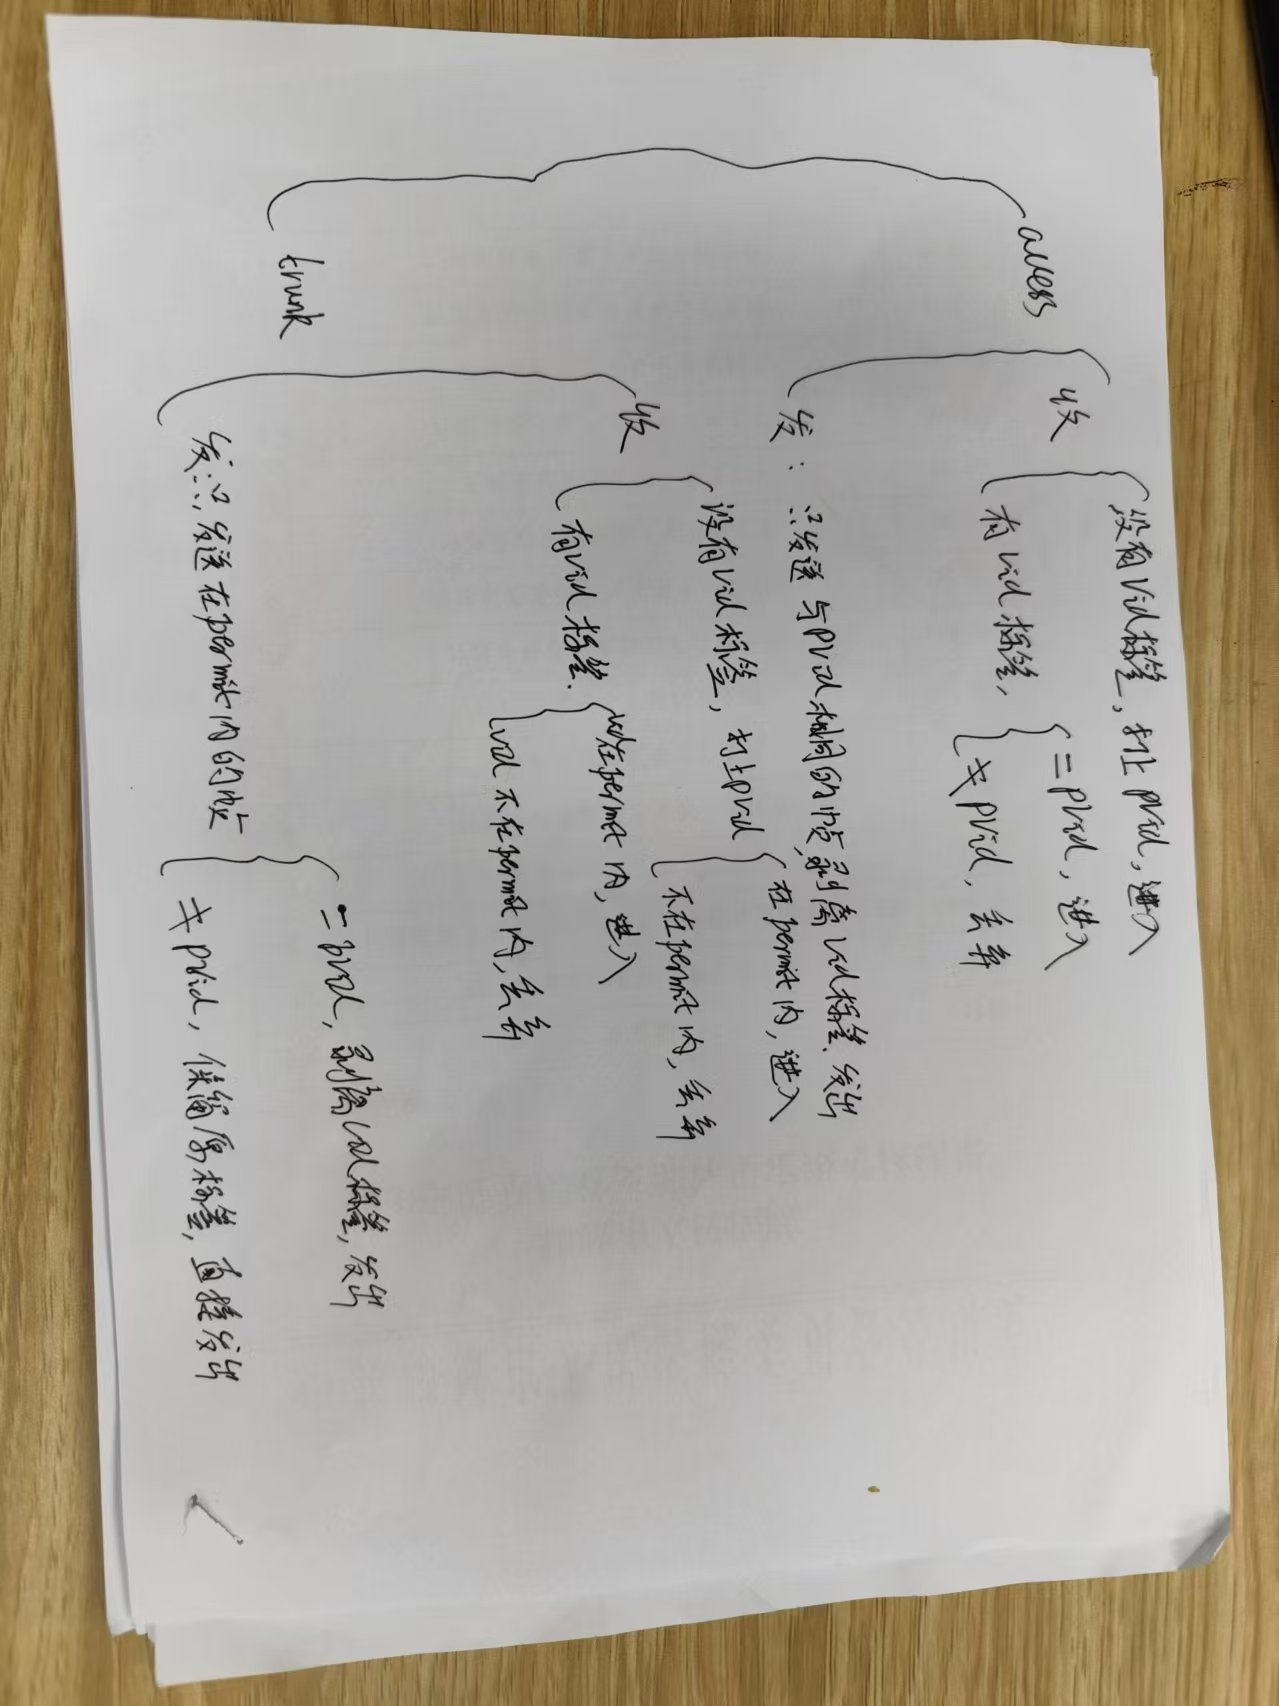 access
收
没有vid标签，打上pvid，进入
有vid标签，
=pvid，进入
≠pvid，丢弃
发：只发送与pvid相同的帧，剥离vid标签.发出
trunk
收
没有vid标签，打上pvid
在permit内，进入
不在permit内，丢弃
有vid标签.
vid在permit内，进入
vid不在permit内，丢弃
发：只发送在permit内的帧
=pvid，剥离vid标签，发出
≠pvid，保留原标签，直接发出